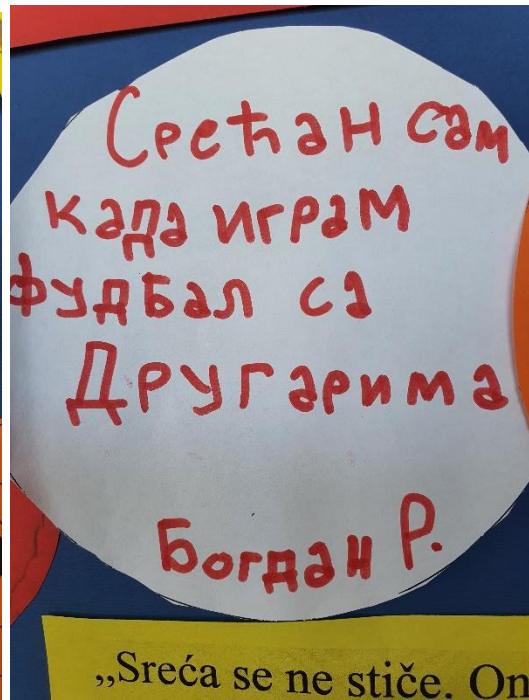 Срећан сам
када играм
фудбал са
Другарима
Богдан Р.
„Sreća se ne stiče. On